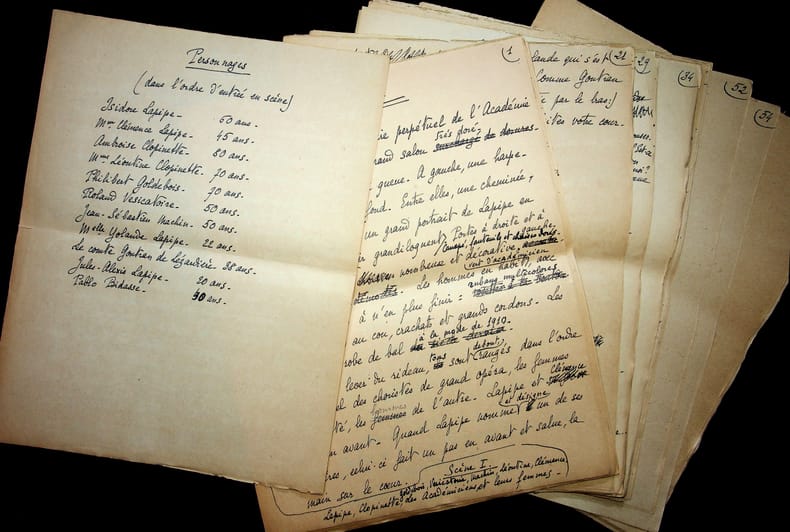 Personnages
(dans l'ordre d'entrée en scène)
Isidore Lapipe - 60 ans -
Mme Clémence Lapipe - 45 ans -
Ambroise Clopinette - 80 ans -
Mme Léontine Clopinette - 70 ans -
Philibert Goldebois - 70 ans -
Roland Vésicatoire - 50 ans -
Jean-Sébastien Machin - 50 ans -
Melle Yolande Lapipe - 22 ans -
Le comte Gontran de Lézardière - 38 ans -
Jules-Alexis Lapipe - 20 ans -
Pablo Birdasse - 30 ans -
1
ie perpétuel de l'Académie
très doré,
rand salon de dorures -
queue. A gauche, une harpe -
fond. Entre elles, une cheminée,
un grand portrait de Lapipe en
grandiloquent. Portes à droite et à
gauche - Canapé, fauteuils et
nombreuse et décorative,
vert d'académicien
Les hommes en habit, avec
rubans multicolores
à n'en plus finir =
au cou, crachats et grands cordons. Les
robe de bal à la mode de 1910 -
debout,
lever du rideau, tous sont rangés dans l'ordre
des choristes de grand opéra, les femmes
té, les hommes de l'autre - Lapipe et Clémence
et désigne
avant - Quand Lapipe nomme un de ses
res, celui-ci fait un pas en avant et salue, la
main sur le cœur.
Scène I
Vésicatoire, Machin, Léontine, Clémence
Lapipe, Clopinette, les Académiciens et leurs femmes -
21
lande qui s'est
Comme Gontran
te par le bras!)
ites votre cour -
29
34
52
54